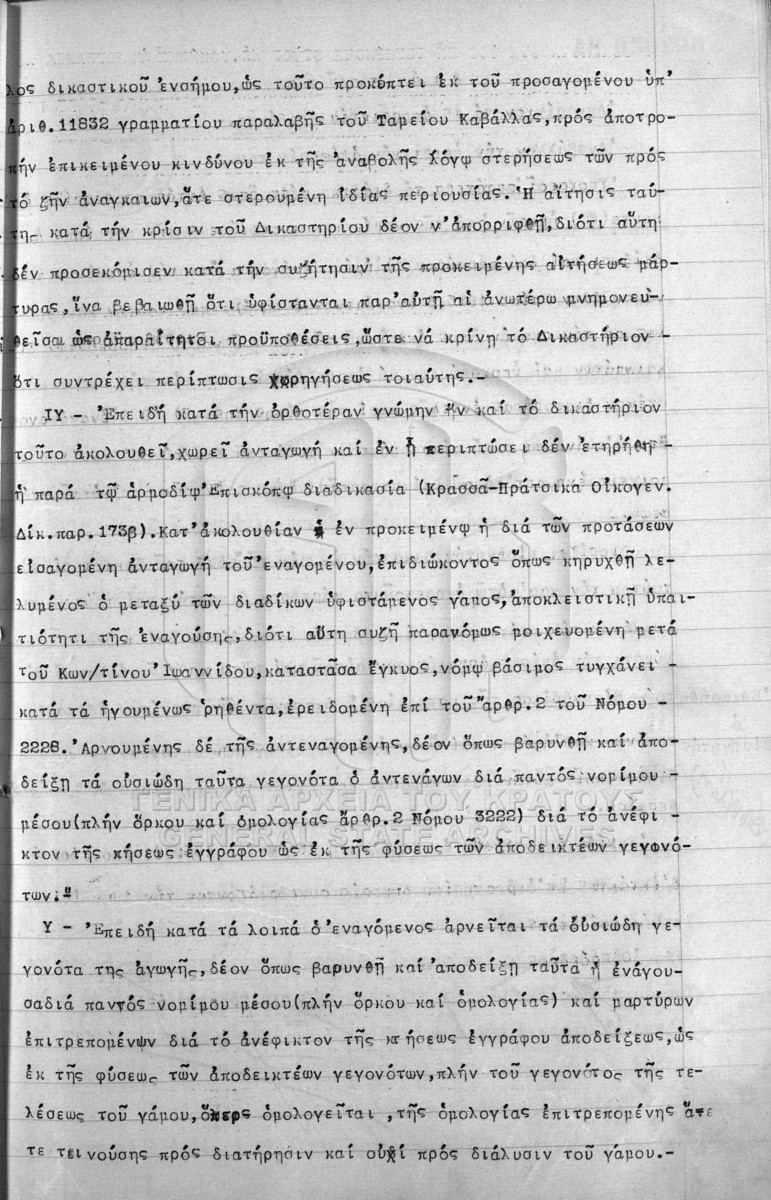 λος δικαστικοῦ ἐνσήμου,ὡς τοῦτο προκύπτει ἐκ τοῦ προσαγομένου ὑπ'
ἀριθ.11832 γραμματίου παραλαβῆς τοῦ Ταμείου Καβάλλας,πρός ἀποτρο-
πήν ἐπικειμένου κινδύνου ἐκ τῆς ἀναβολῆς λόγῳ στερήσεως τῶν πρός
τό ζῆν ἀναγκαιων,ἅτε στερουμένη ἰδίας περιουσίας.Ἡ αἴτησις ταύ-
της κατά τήν κρίσιν τοῦ Δικαστηρίου δέον ν'ἀπορριφθῇ,διότι αὕτη
δέν προσεκόμισεν κατά τήν συζήτησιν τῆς προκειμένης αἰτήσεως μάρ-
τυρας,ἵνα βεβαιωθῇ ὅτι ὑφίστανται παρ'αὐτῇ αἱ ἀνωτέρω μνημονευ-
θεῖσαι ὡς ἀπαραίτητοι προϋποθέσεις,ὥστε νά κρίνῃ τό Δικαστήριον -
ὅτι συντρέχει περίπτωσις χορηγήσεως τοιαύτης.-
ΙΥ - Ἐπειδή κατά τήν ὀρθοτέραν γνώμην ἥν καί τό δικαστήριον
τοῦτο ἀκολουθεῖ,χωρεῖ ἀνταγωγή καί ἐν ᾗ περιπτώσει δέν ἐτηρήθη -
ἡ παρά τῷ ἁρμοδίῳ Ἐπισκόπῳ διαδικασία (Κρασσᾶ-Πράτσικα Οἰκογεν.
Δίκ.παρ.173β).Κατ'ἀκολουθίαν ἐν προκειμένῳ ἡ διά τῶν προτάσεων
εἰσαγομένη ἀνταγωγή τοῦ ἐναγομένου,ἐπιδιώκοντος ὅπως κηρυχθῇ λε-
λυμένος ὁ μεταξύ τῶν διαδίκων ὑφιστάμενος γάμος,ἀποκλειστικῇ ὑπαι-
τιότητι τῆς ἐναγούσης,διότι αὕτη συζῇ παρανόμως μοιχευομένη μετά
τοῦ Κων/τίνου Ἰωαννίδου,καταστᾶσα ἔγκυος,νόμῳ βάσιμος τυγχάνει -
κατά τά ἡγουμένως ῥηθέντα,ἐρειδομένη ἐπί τοῦ ἄρθρ.2 τοῦ Νόμου -
2228.Ἀρνουμένης δέ τῆς ἀντεναγομένης,δέον ὅπως βαρυνθῇ καί ἀπο-
δείξῃ τά οὐσιώδη ταῦτα γεγονότα ὁ ἀντενάγων διά παντός νομίμου -
μέσου(πλήν ὅρκου καί ὁμολογίας ἄρθρ.2 Νόμου 3222) διά τό ἀνέφι -
κτον τῆς κήσεως ἐγγράφου ὡς ἐκ τῆς φύσεως τῶν ἀποδεικτέων γεγονό-
των."
Υ - Ἐπειδή κατά τά λοιπά ὁ ἐναγόμενος ἀρνεῖται τά οὐσιώδη γε-
γονότα της ἀγωγῆς,δέον ὅπως βαρυνθῇ καί ἀποδείξῃ ταῦτα ἡ ἐνάγου-
σαδιά παντός νομίμου μέσου(πλήν ὅρκου καί ὁμολογίας) καί μαρτύρων
ἐπιτρεπομένων διά τό ἀνέφικτον τῆς κτήσεως ἐγγράφου ἀποδείξεως,ὡς
ἐκ τῆς φύσεως τῶν ἀποδεικτέων γεγονότων,πλήν τοῦ γεγονότος τῆς τε-
λέσεως τοῦ γάμου,ὅπερ ὁμολογεῖται,τῆς ὁμολογίας ἐπιτρεπομένης ἅτε
τε τεινούσης πρός διατήρησιν καί οὐχί πρός διάλυσιν τοῦ γάμου.-
ΓΕΝΙΚΑ ΑΡΧΕΙΑ ΤΟΥ ΚΡΑΤΟΥΣ
GENERAL STATE ARCHIVES